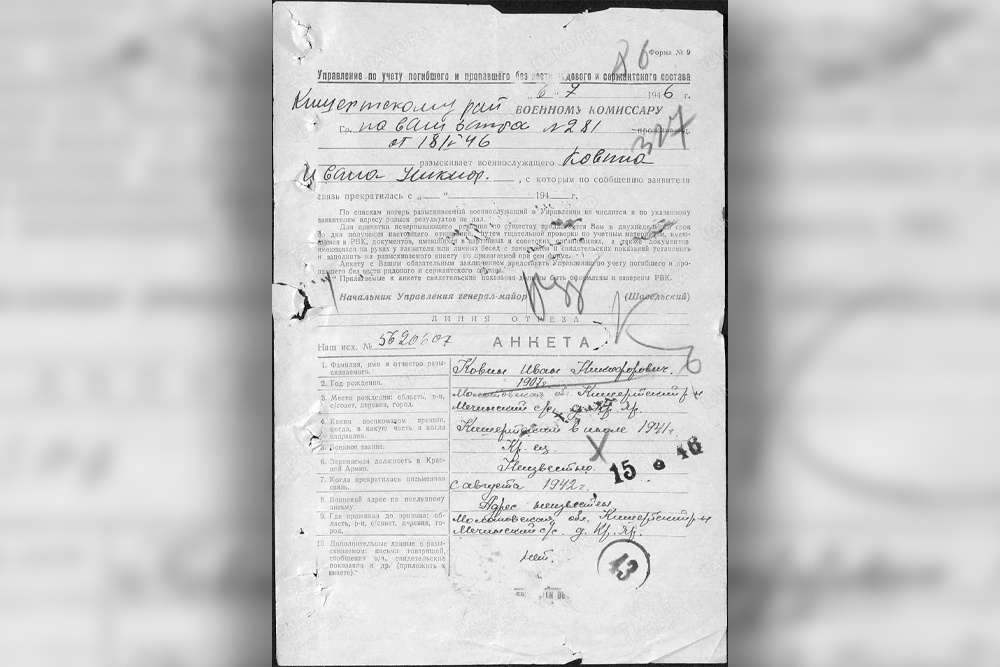 86
Форма № 9
Управление по учету погибшего и пропавшего без вести рядового и сержантского состава
6 " 7 1946 г.
Кишертскому рай ВОЕННОМУ КОМИССАРУ
Гр. на ваш № 281 прожива
от 18/ 46
307
разыскивает военнослужащего Ковина
Ивана Никиф. , с которым по сообщению заявителя
связь прекратилась с „ “ 194 г.
По спискам потерь разыскиваемый военнослужащий в Управлении не числится и по указанному
заявителем адресу розыск результатов не дал.
Для принятия исчерпывающего по существу предлагается Вам в двухнедельный срок
со дня получения настоящего отношения, путем тщательной проверки по учетным материалам, имею-
щимся в РВК, документов, имеющихся в партийных и советских организациях, а также документов
имеющихся на руках у заявителя или личных бесед с заявителем и свидетельских показаний установить
и заполнить на разыскиваемого анкету по прилагаемой при сем форме.
Анкету с Вашим обязательным заключением представить Управлению по учету погибшего и про-
павшего без вести рядового и сержантского состава.
Прилагаемые к анкете свидетельские показания должны быть оформлены и заверены РВК.
Начальник Управления генерал-майор (Шавельский)
ЛИНИЯ ОТРЕЗА
Наш исх. № 5620607 АНКЕТА
1. Фамилия, имя и отчество разы-
скиваемого.
Ковин Иван Никифорович.
2. Год рождения.
1907г.
3. Место рождения: область, р-н,
с/совет, деревня, город.
Молотовская об. Кишертский р-н
Мечинский с/с. д. Кр. Яр.
4. Каким военкоматом призван,
когда, в какую часть и когда
направлен.
Кишертским в июле 1941г.
5. Военное звание.
Кр-ец.
6. Занимаемая должность в Крас-
ной Армии.
Неизвестно.
15 46
7. Когда прекратилась письменная
связь.
С августа 1942г.
8. Воинский адрес по последнему
письму.
Адрес неизвестен
9. Где проживал до призыва: об-
ласть, р-н, с/совет, деревня, го-
род.
Молотовская обл. Кишертский р-н
Мечинский с/с. д. Кр. Яр.
10. Дополнительные данные о разы-
скиваемом: письма товарищей,
сообщения в/ч, свидетельские
показания и др. (приложить к
анкете).
нет.
13